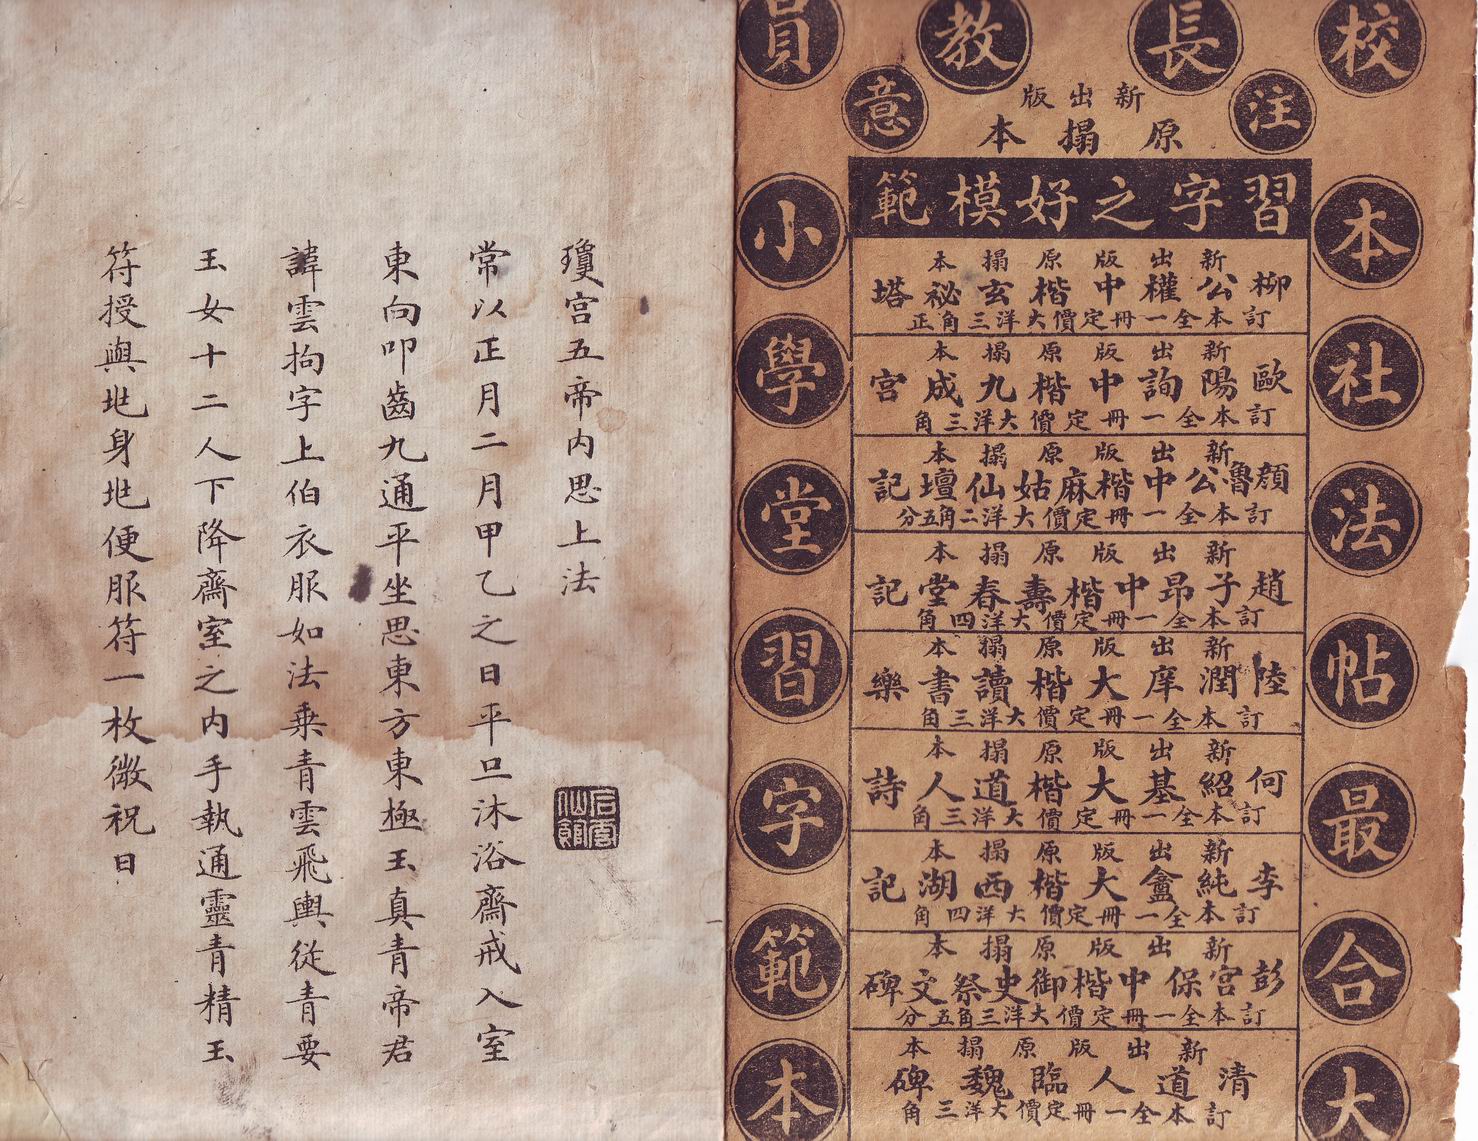 校長教員
注意
新出版
原搨本
本社法帖最合大
小學堂習字範本
習字之好模範
新出版原搨本
柳公權中楷玄祕塔
訂本全一冊定價大洋三角正
新出版原搨本
歐陽詢中楷九成宮
訂本全一冊定價大洋三角
新出版原搨本
顏魯公中楷麻姑仙壇記
訂本全一冊定價大洋二角五分
新出版原搨本
趙子昂中楷壽春堂記
訂本全一冊定價大洋四角
新出版原搨本
陸潤庠大楷讀書樂
訂本全一冊定價大洋三角
新出版原搨本
何紹基大楷道人詩
訂本全一冊定價大洋三角
新出版原搨本
李純盦大楷西湖記
訂本全一冊定價大洋四角
新出版原搨本
彭宮保中楷御史祭文碑
訂本全一冊定價大洋三角五分
新出版原搨本
清道人臨魏碑
訂本全一冊定價大洋三角
瓊宮五帝內思上法
常以正月二月甲乙之日平旦沐浴齋戒入室
東向叩齒九通平坐思東方東極玉真青帝君
諱雲拘字上伯衣服如法乘青雲飛輿從青要
玉女十二人下降齋室之內手執通靈青精玉
符授與兆身兆便服符一枚微祝曰